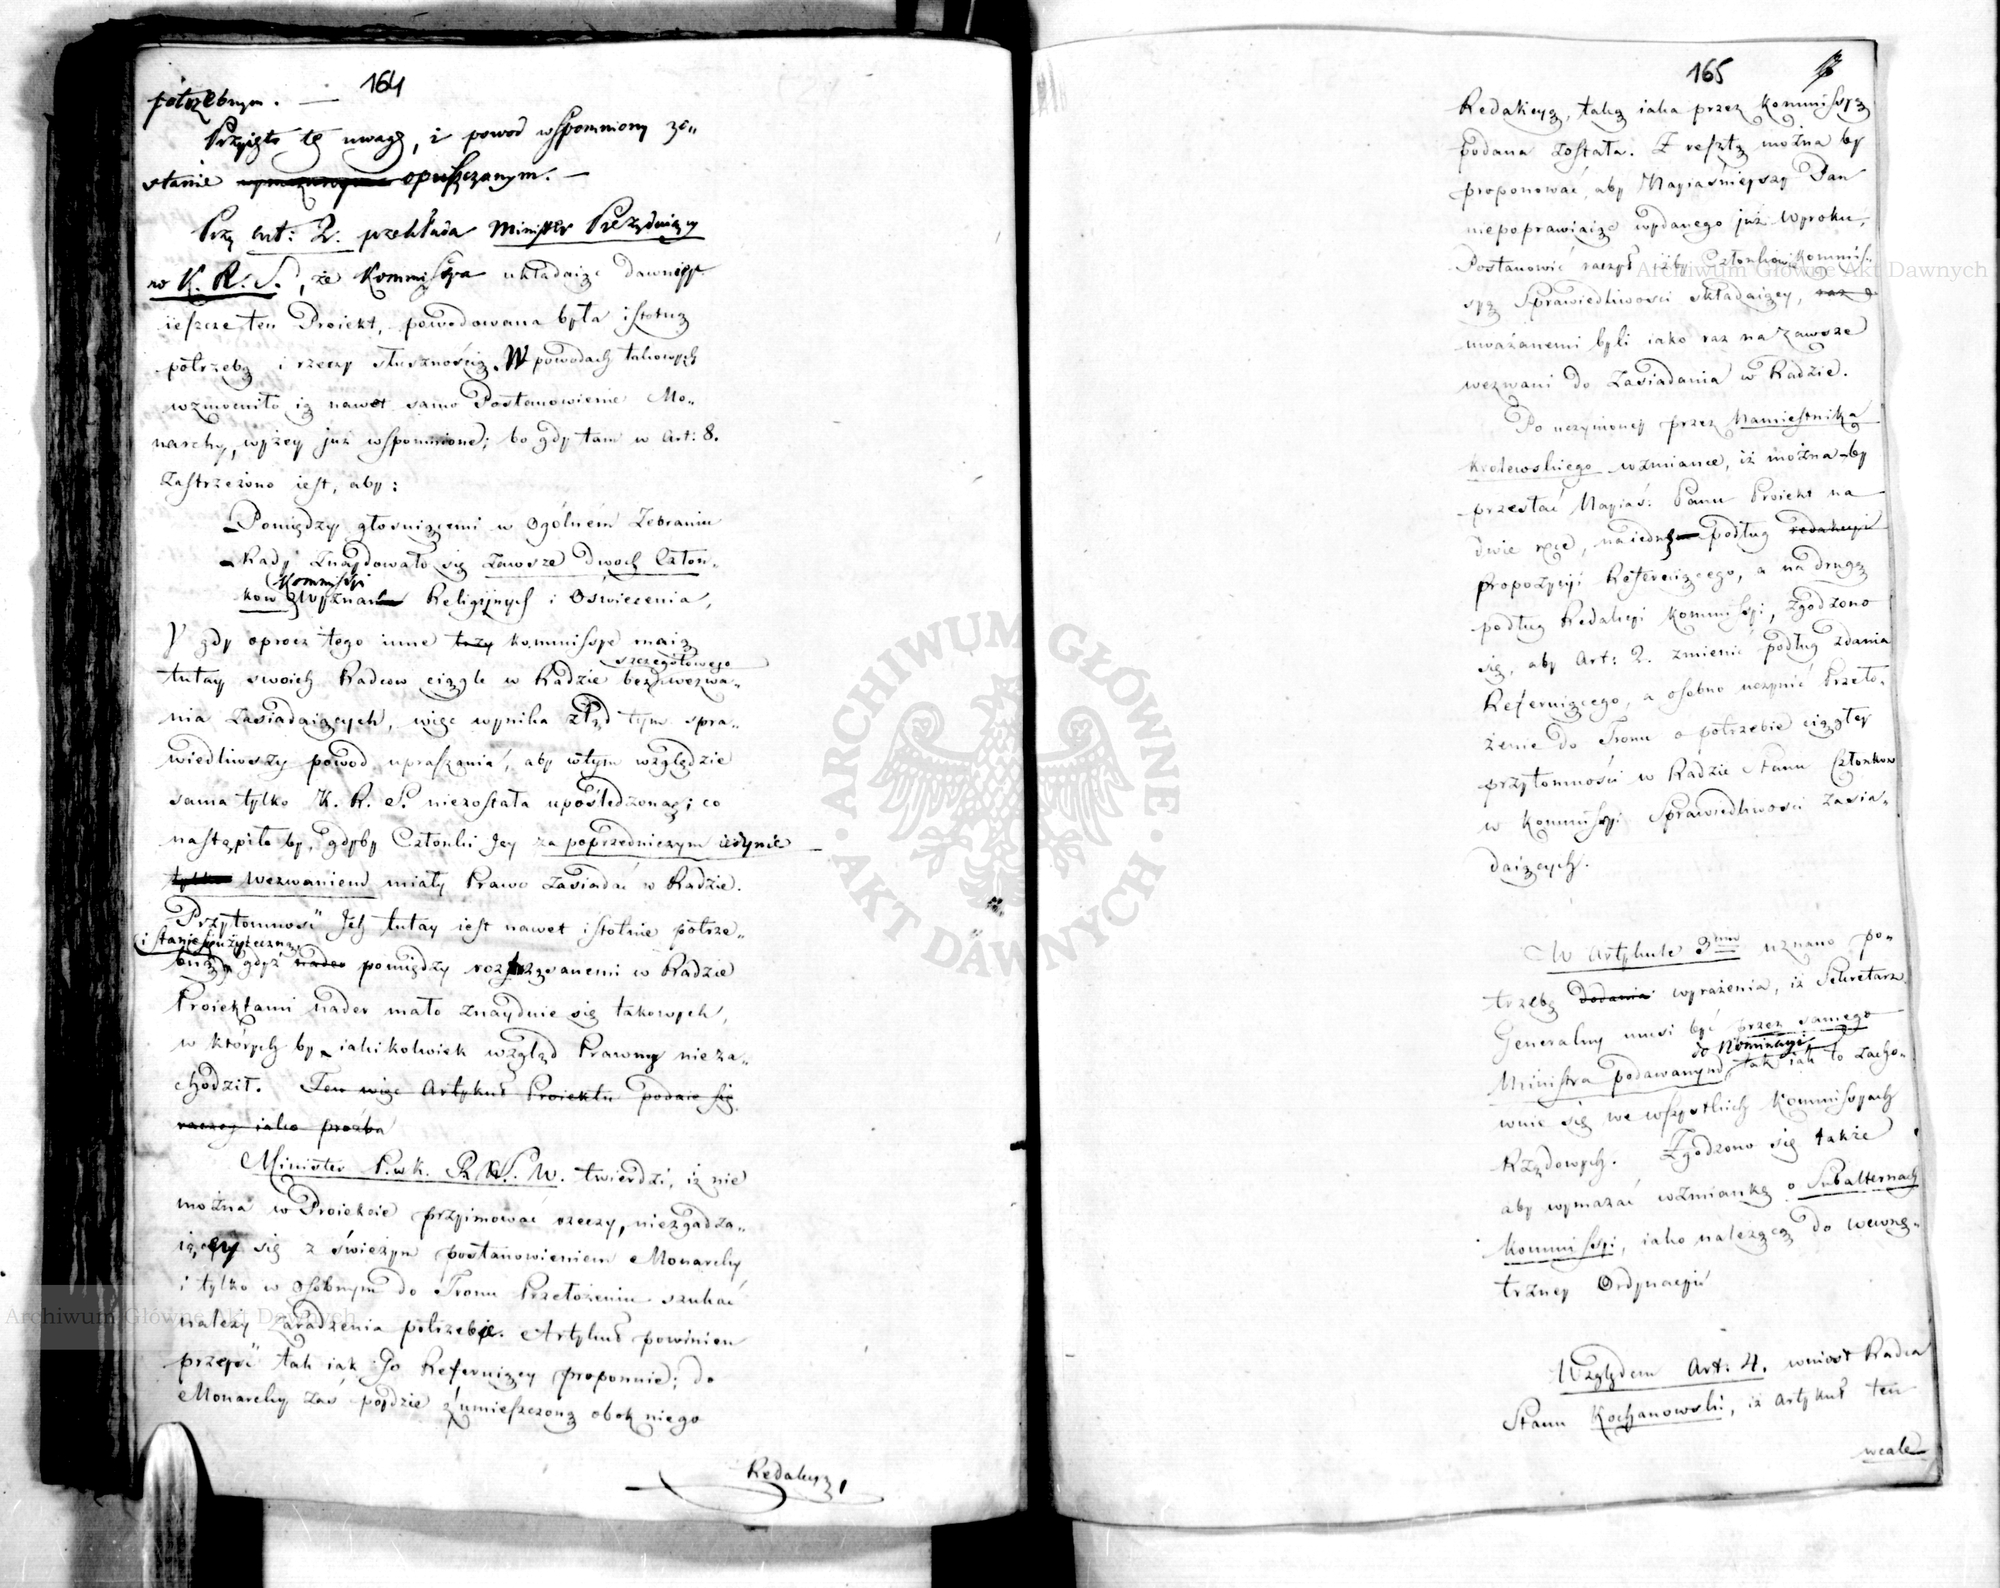 164
potrzebnym. —
Przyięto tę uwagę, i powod wspomniony zo„
stanie opuszczanym. —
Przy art: 2. przekłada Minister Prezyduiący
w K. R. S., że Kommissya układaiąc dawniey
ieszcze ten Proiekt, powodowana była istotną
potrzebą i rzeczy słusznością. W powodach takowych
wzmocniło ią nawet samo Postanowienie Mo„
narchy, wyżey już wspomnione; bo gdy tam w Art: 8.
zastrzeżono iest, aby:
Pomiędzy głosuiącemi w Ogólném Zebraniu
Rady znaydowało się zawsze dwoch Człon„
Kommissyi
kow Wyznań Religiynych i Oświecenia,
Y gdy oprocz tego inne trzy kommissye maią
szczegółowego
tutay swoich Radcow ciągle w Radzie bez wezwa„
nia zasiadaiących, więc wynika ztąd tym spra„
wiedliwszy powod upraszania, aby w tym względzie
sama tylko K. R. S. nie została upośledzoną; co
nastąpiło by, gdyby Członki Jey za poprzedniczym iedynie
tylko wezwaniem miały Prawo zasiadać w Radzie.
Przytomność Ich tutay iest nawet istotnie potrze„
i stanie się użyteczną,
bną, gdyż nader pomiędzy roztrząsanemi w Radzie
Proiektami nader mało znaydzie się takowych,
w których by iakikolwiek wzgląd Prawny nie za„
chodził. Ten więc Artykuł Proiektu podaie się
raczey iako prożba
Minister P. w K. R. S. W. twierdzi, iż nie
można w Proiekcie przyimować rzeczy, niezgadza„
iącey się z świeżym postanowieniem Monarchy
i tylko w osobnym do Tronu Przełożeniu szukać
należy zaradzenia potrzebie. Artykuł powinien
przeyść tak iak Go Referuiący proponuie; do
Monarchy zaś póydzie z umieszczoną obok niego
Redakcyą,
165
Redakcyą, taką iaka przez Kommissyą
podana została. Z resztą można by
proponować, aby Nayiaśnieyszy Pan
niepoprawiaiąc wydanego już Wyroku,
Postanowić raczył iżby Członkowie Kommis„
syą Sprawiedliwości składaiący,
uważanemi byli iako raz na zawsze
wezwani do zasiadania w Radzie.
Po uczynioney przez Namiestnika
Krolewskiego wzmiance, iż można-by
przesłać Nayiaś: Panu Proiekt na
dwie ręce, na iedną podług redakcyi
propozycyi Referuiącego, a na drugą
podług Redakcyi Kommissyi, zgodzono
się, aby Art: 2. zmienić podług zdania
Referuiącego, a osobno uczynić Przeło„
żenie do Tronu o potrzebie ciągłey
przytomności w Radzie Stanu Członkow
w Kommissyi Sprawiedliwości zasia„
daiących.
W Artykule 3tym uznano po„
trzebę dodania wyrażenia, iż Sekretarz
Generalny musi być przez samego
do Nominacyi
Ministra podawanym, tak iak to zacho„
wuie się we wszystkich Kommissyach
Rządowych. Zgodzono się także
aby wymazać wzmiankę o Subalternach
Kommissyi, iako należącą do wewnę„
trzney Ordynacyi
Względem Art: 4. wniosł Radca
Stanu Kochanowski, iż Artykuł ten
wcale